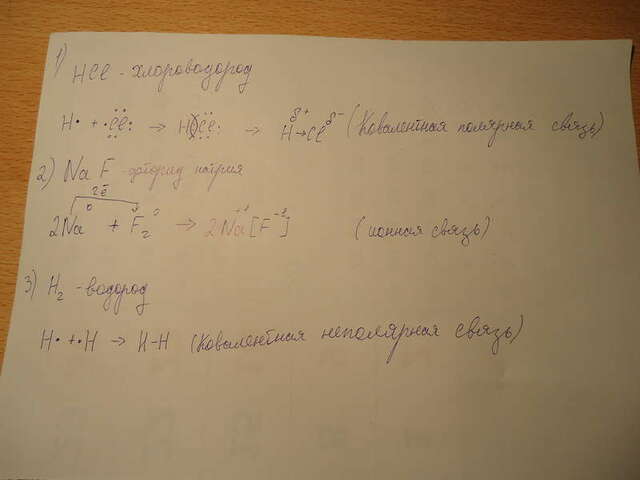 1) HCl - хлороводород
H• + •Cl: → H:Cl: → H→Cl δ+ δ- (Ковалентная полярная связь)
2) NaF - фторид натрия
2ē
2Na⁰ + F₂⁰ → 2Na⁺¹[F⁻¹] (ионная связь)
3) H₂ - водород
H• + •H → H-H (Ковалентная неполярная связь)